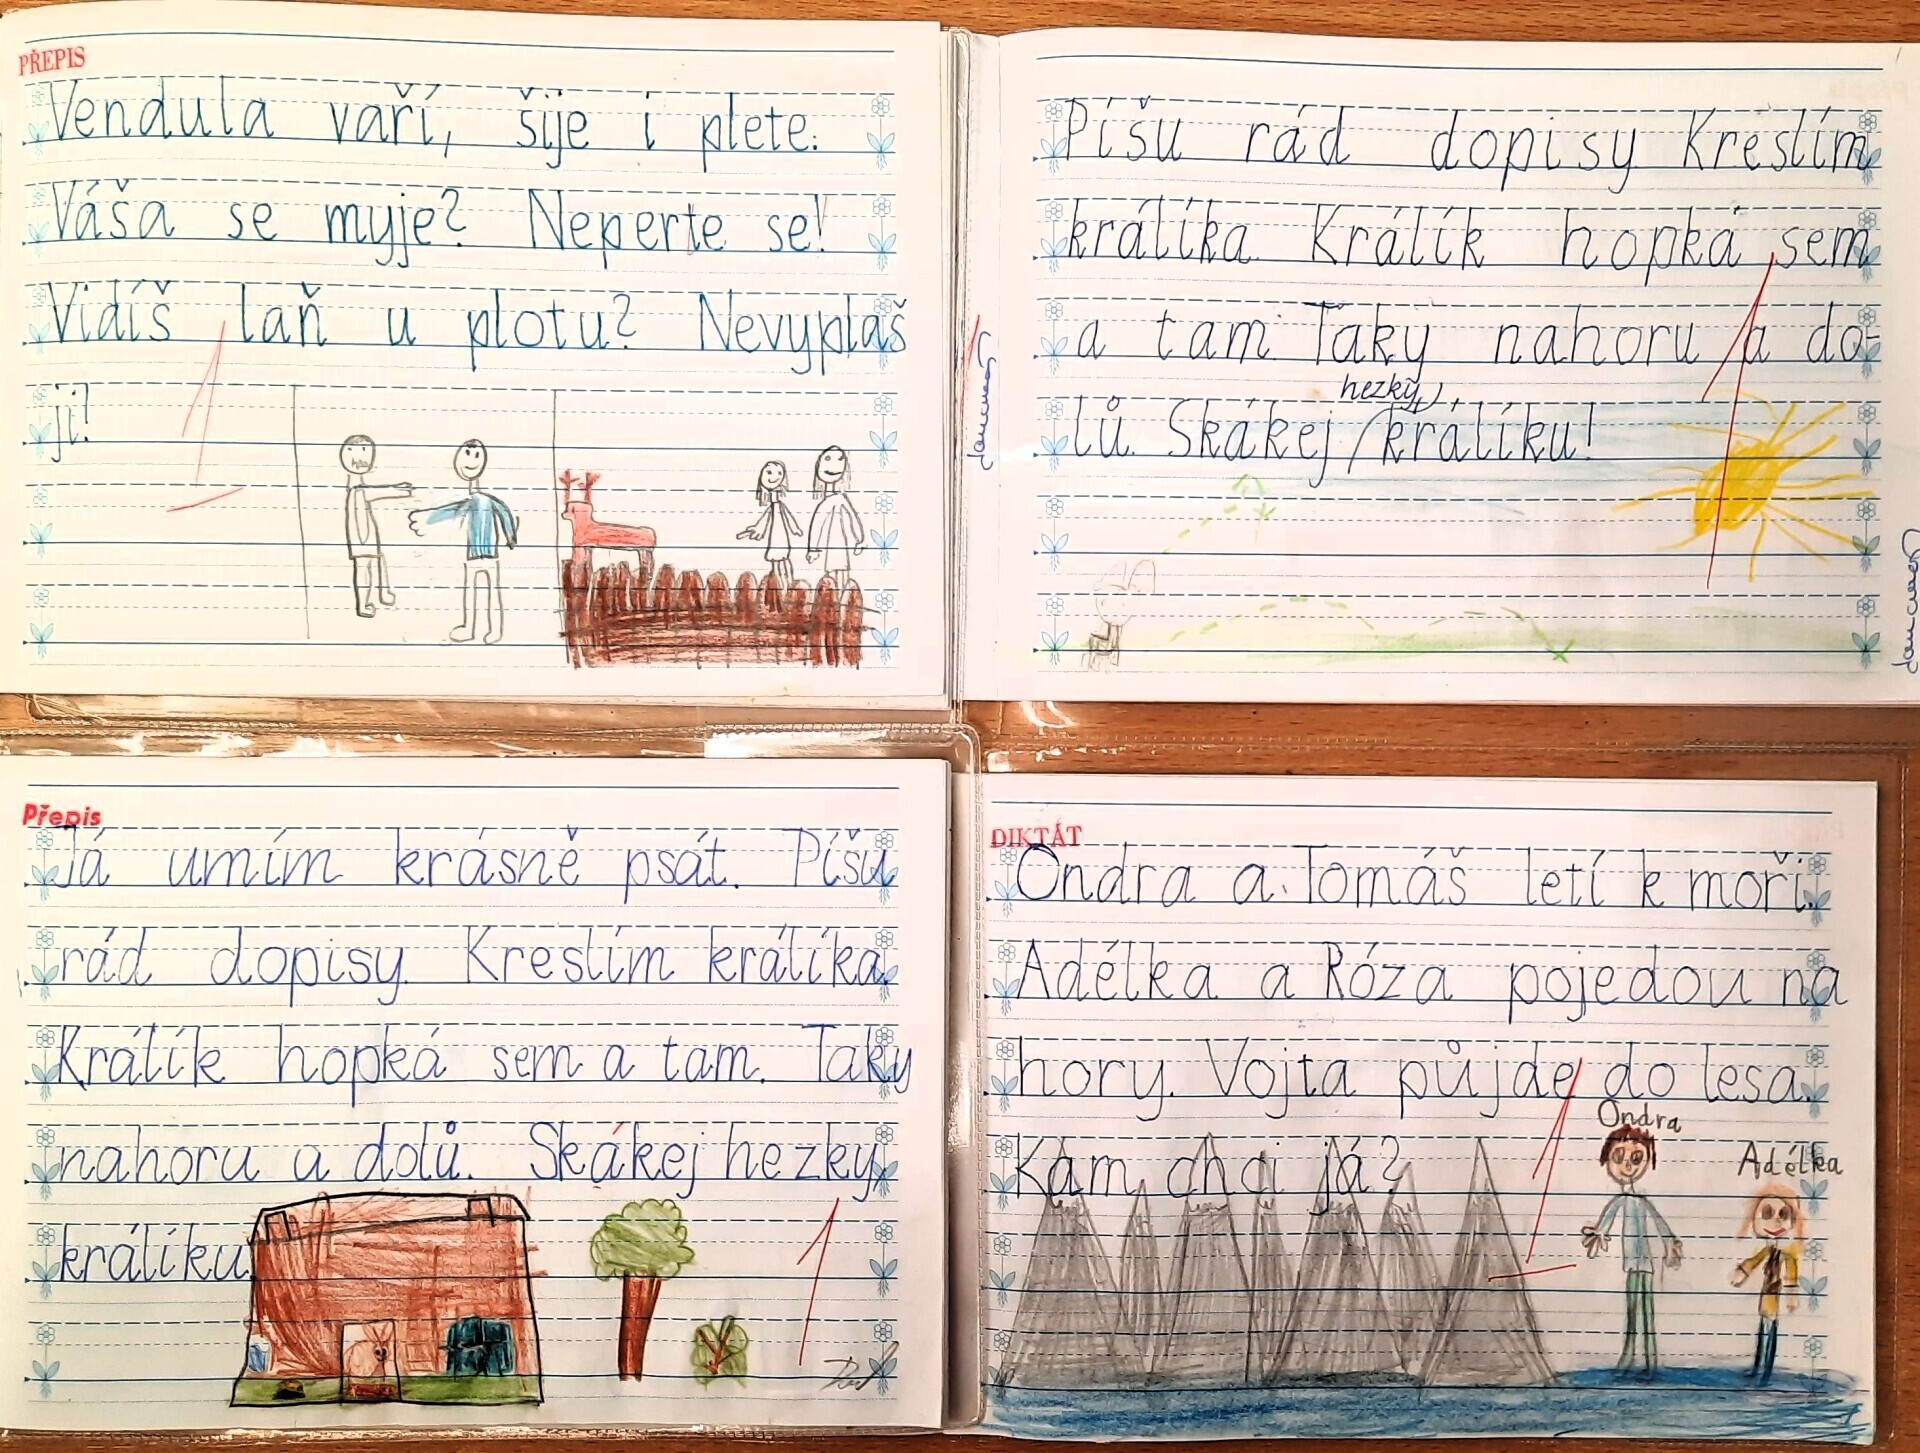 PŘEPIS
Vendula vaří, šije i plete.
Váša se myje? Neperte se!
Vidíš laň u plotu? Nevyplaš
ji!
Píšu rád dopisy. Kreslím
králíka. Králík hopká sem
a tam. Taky nahoru a do-
hezky,
lů. Skákej králíku!
Přepis
Já umím krásně psát. Píšu
rád dopisy. Kreslím králíka.
Králík hopká sem a tam. Taky
nahoru a dolů. Skákej hezky,
králíku
DIKTÁT
Ondra a Tomáš letí k moři.
Adélka a Róza pojedou na
hory. Vojta půjde do lesa.
Kam chci já?
Ondra
Adélka
1
1
1
1